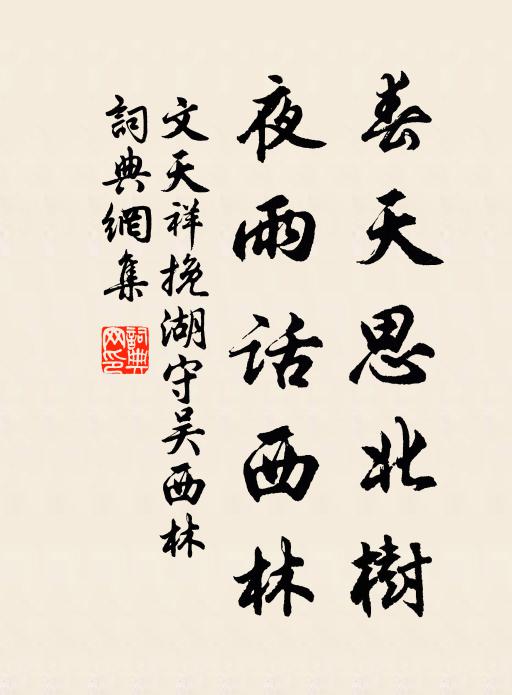 春天思北樹
夜雨話西林
文天祥挽湖守吴西林
詞典網集
詞典網印